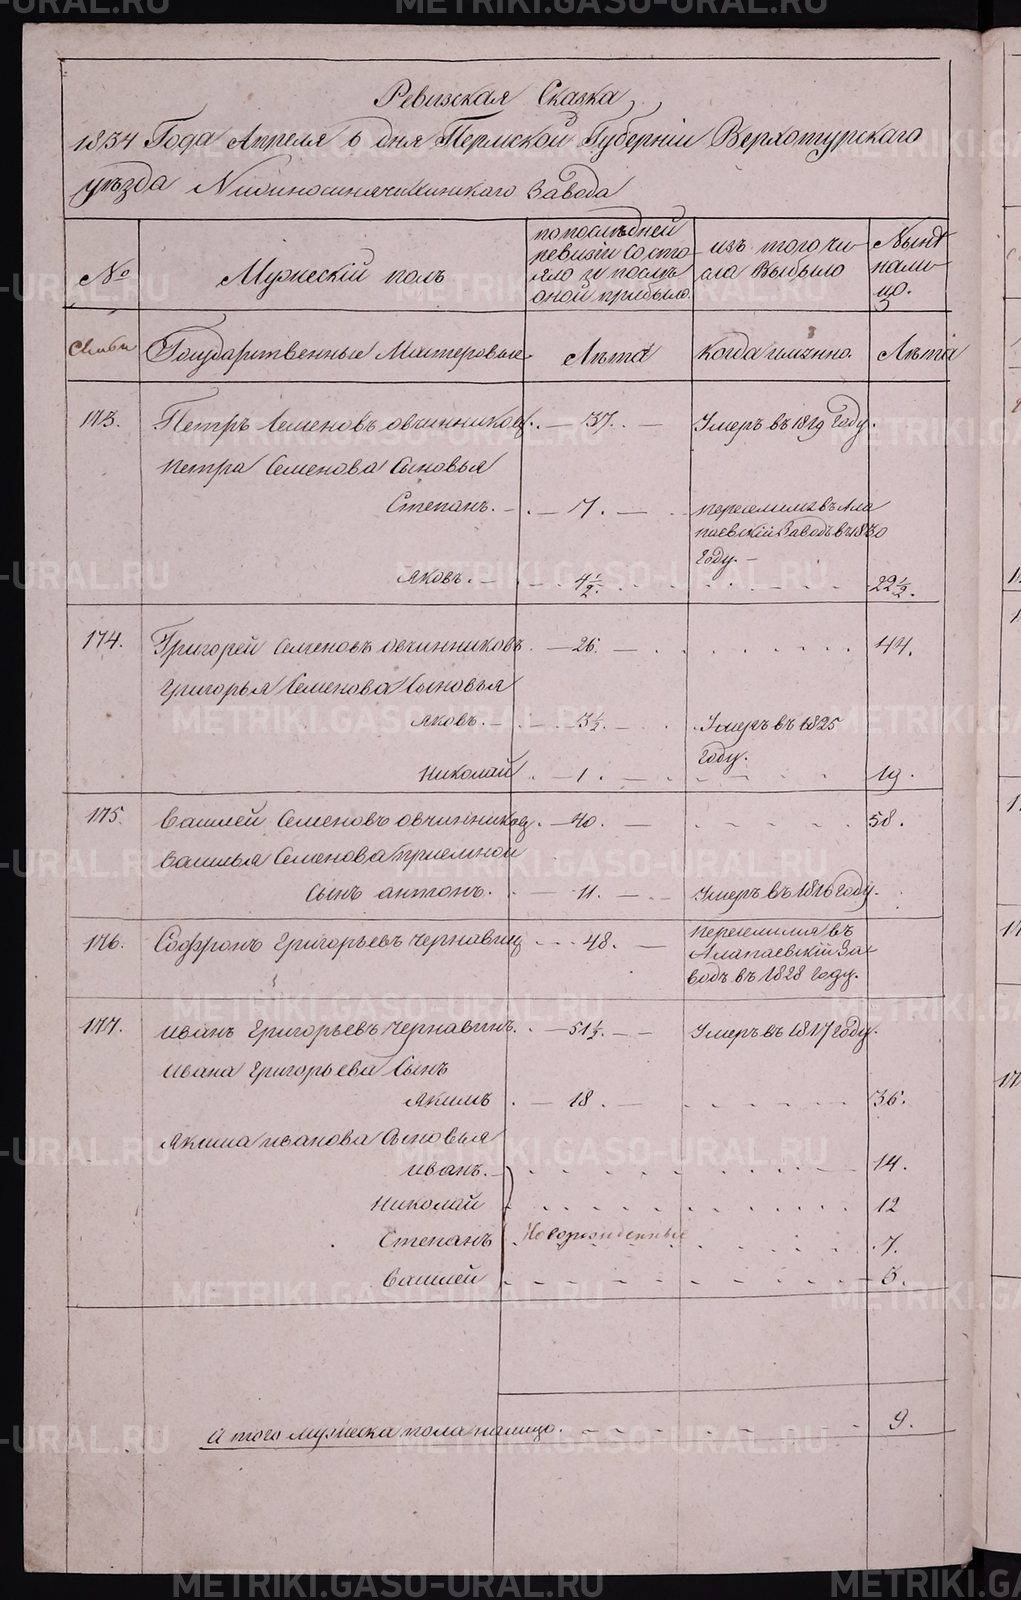 Ревизская Сказка
1834 Года Апреля 6 дня Пермской Губерніи Верхотурского
уѣзда Нижносинячихинского Завода
№
Мужескій полъ
по послѣдней ревизіи состояло и послѣ оной прибыло.
изъ того числа Выбыло
Нынѣ налицо.
Семьи
Государственные Мастеровые
Лѣта
когда имянно.
Лѣта
173. Петръ Семеновъ овчинниковъ. 37. Умеръ въ 1819 Году.
Петра Семенова Сыновья
Степанъ. 17. переселился въ Алапаевскій Заводъ въ 1830 Году.
яковъ. 4 1/2. 22 1/2.
174. Григорей Семеновъ овчинниковъ. 26. 44.
Григорья Семенова Сыновья
яковъ. 3 1/2. Умеръ въ 1825 Году.
Николай. 1. 19.
175. Василей Семеновъ овчинниковъ. 40. 58.
Василья Семенова приемной
Сынъ антонъ. 11. Умеръ въ 1816 Году.
176. Софронъ Григорьевъ чернавинъ 48. переселился въ Алапаевскій Заводъ въ 1828 Году.
177. Иванъ Григорьевъ чернавинъ. 51 1/2. Умеръ въ 1817 году.
Ивана Григорьева Сынъ
Якимъ. 18. 36.
Якима иванова Сыновья
иванъ. 14.
Николай 12
Степанъ Новорожденные 7.
Василей 5.
Итого мужеска пола налицо. 9.
METRIKI.GASO-URAL.RU